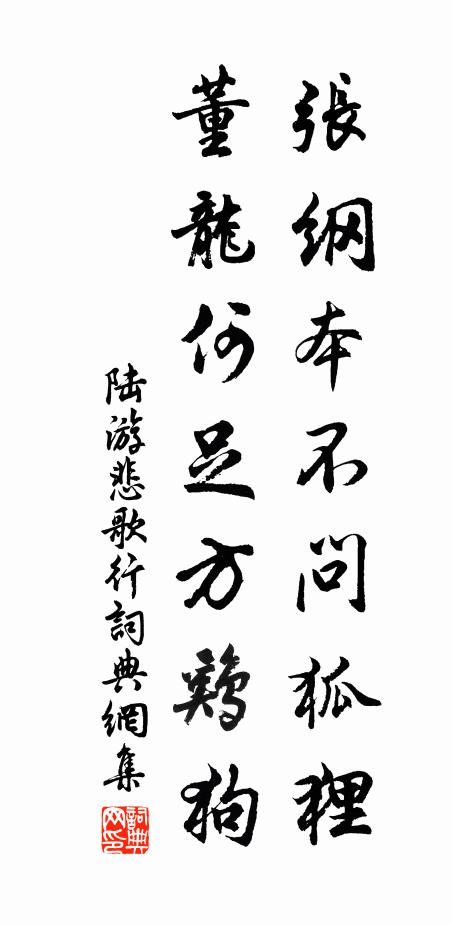 張綱本不問狐狸
董龍何足方鷄狗
陆游悲歌行詞典網集
詞典网印